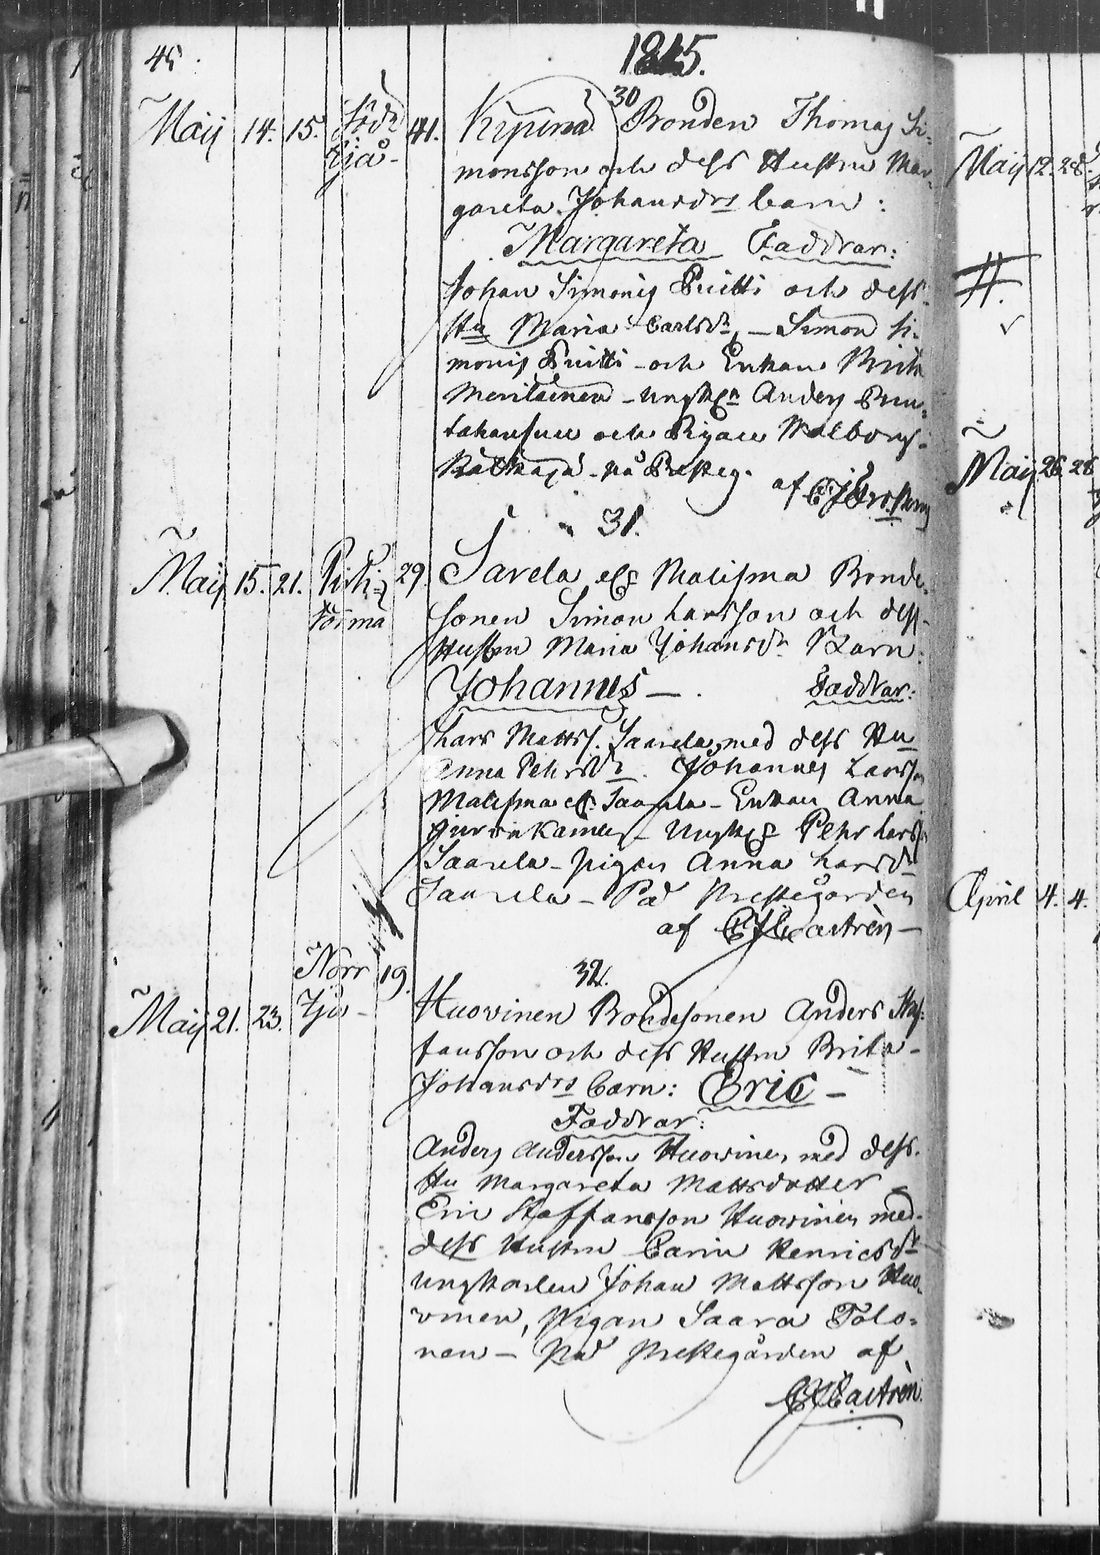 45.
1815.
30
Maij 14. 15. Södr 41. Bonden Thomas Si-
Tjå- monsson och dess Hustru Mar-
gareta Johansdrs barn:
Margareta Faddrar:
Johan Simonis Puitti och dess
Hu Maria Carlsdr, - Simon Si-
monis Puitti - och Enkan Brita
Meriläinen - ungkn Anders
och Pigan Walborg
på Presteg. af
31.
Maij 15. 21. 29 Sarela Malisma Bonde-
Törmä sonen Simon Larsson och dess
Hustru Maria Johansdr Barn:
Johannes - . Faddrar:
Lars Mattss. Saarela med dess Hu
Anna Pehrsdr. Johannes Larsson
Malisma Saarela - Enkan Anna
Pehr Larss
Saarela - pigan Anna Larsdr
Saarela - På Prestegården
af Castrèn -
32.
Norr 19.
Maij 21. 23. Tjå - Huovinen Bondesonen Anders Staf-
fansson och dess Hustru Brita
Johansdrs Barn: Eric -
Faddrar:
Anders Andersson Huovinen med dess
Hu Margareta Mattsdotter
Eric Staffansson Huovinen med
dess Hustru Carin Henricsdr
ungkarlen Johan Mattsson Huo-
vinen, Pigan Saara Tolo-
nen - På Prestegården af
Castrèn.
Maij 12. 28.
#.
Maij 26 28
April 4. 4.